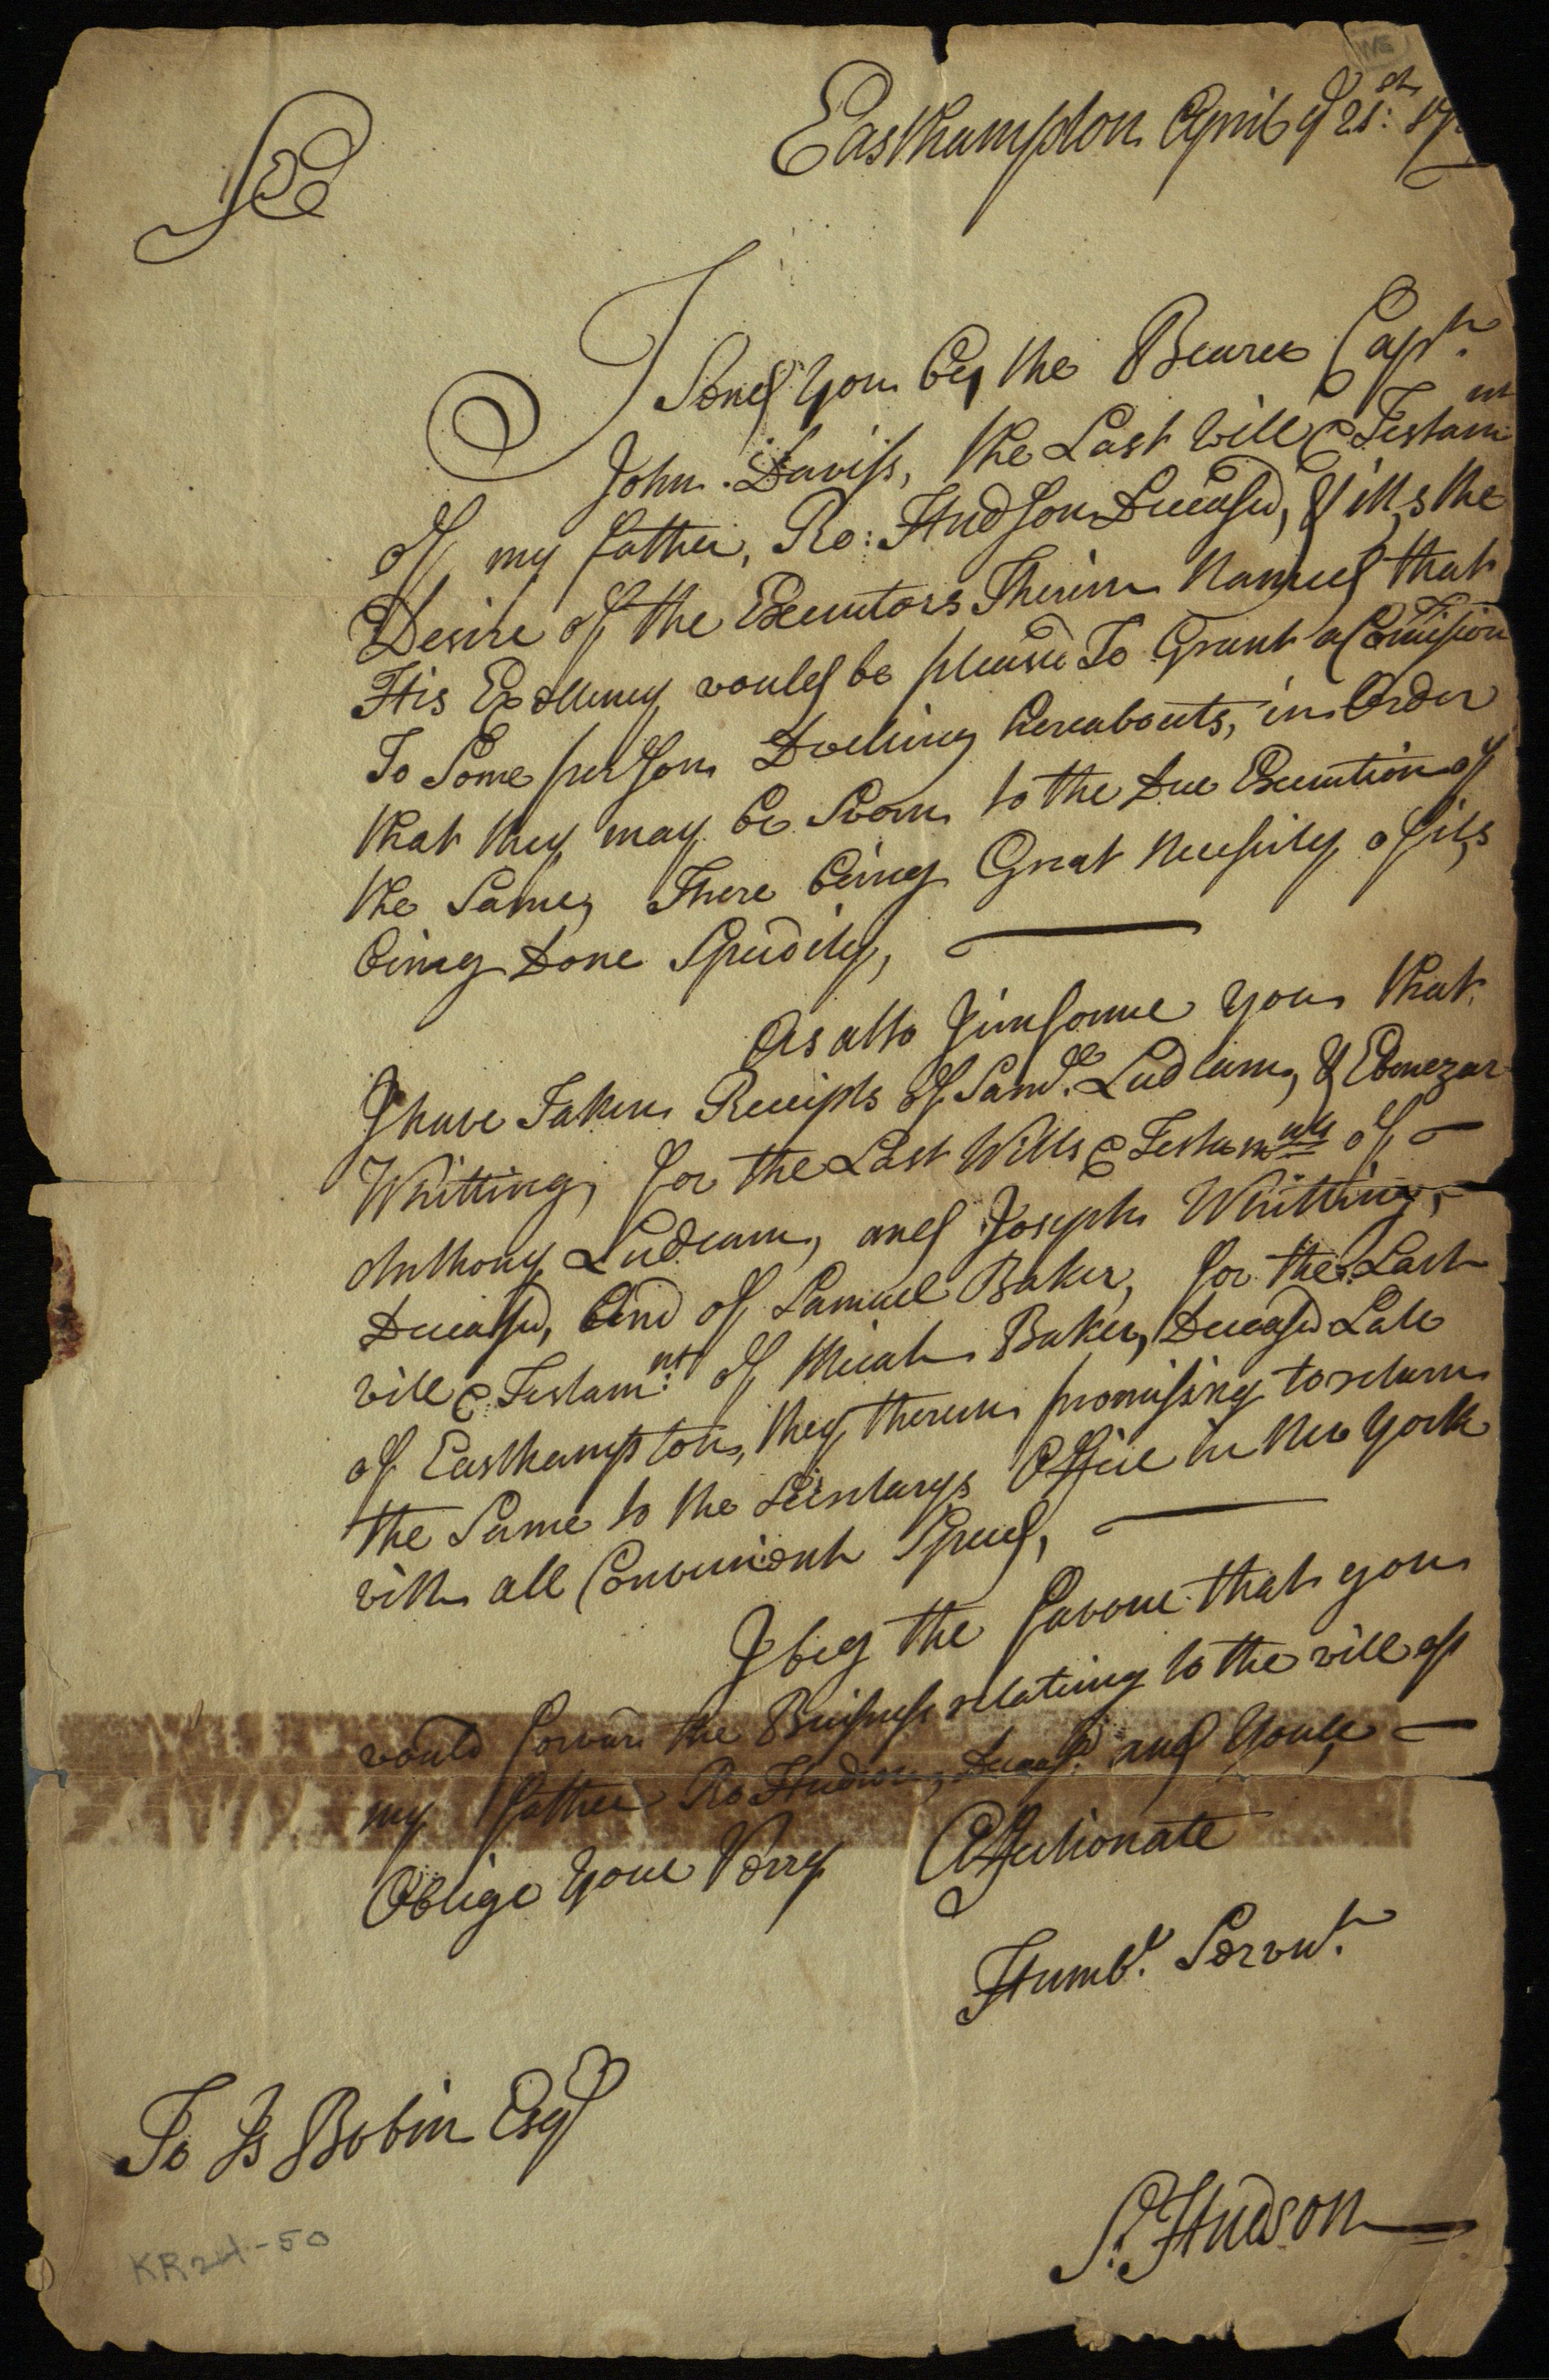 Easthampton April ye 21st: 17
Sr
I Send You by the Bearer Capt.
John Daviss, the Last Will & Testamnt
Of my father, Ro: Hudson Deceasd, & itt,s the
Desire of the Executors Therein Named that
His Exellency would be pleased To Grant a Comission
To Some person Dwelling hereabouts, in Order
that they may be Sworn to the Due Execution of
the Same, There being Great Necessity of its
being Done Speedily,
As also I informe you that
I have Taken Receipts of Samll. Ludlam, & Ebenezar
Whitting, for the Last Wills & Testamnts of
Anthony Ludlam, and Joseph Whitting,
Deceasd, And of Samuel Baker, for the Last
will & Testamnt: of Micah Baker, Deceasd Late
of Easthampton, they therein promissing to return
the Same to the Secretarys Office in New York
with all Convenient Speed,
I beg the favour that you
would forward the Buisness relating to the will off
my father Ro Hudson, Deceasd. and Youle
Oblige Your Verry Affectionate
Humbl. Servnt.
To Is Bobin Esqr
S. Hudson
KR24-50